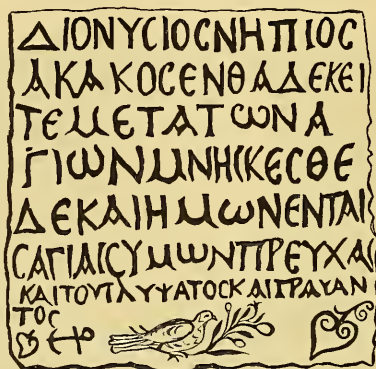 ΔΙΟΝΥCΙΟCΝΗΠΙΟC
ΑΚΑΚΟCΕΝΘΑΔΕΚΕΙ
ΤΕΜΕΤΑΤωΝΑ
ΓΙωΝΜΝΗCΚΕCΘΕ
ΔΕΚΑΙΗΜωΝΕΝΤΑΙ
CΑΓΙΑΙCΥΜωΝΠΡΕΥΧΑΙ
ΚΑΙΤΟΥΓΛΥΨΑΤΟCΚΑΙΓΡΑΨΑΝ
ΤΟC